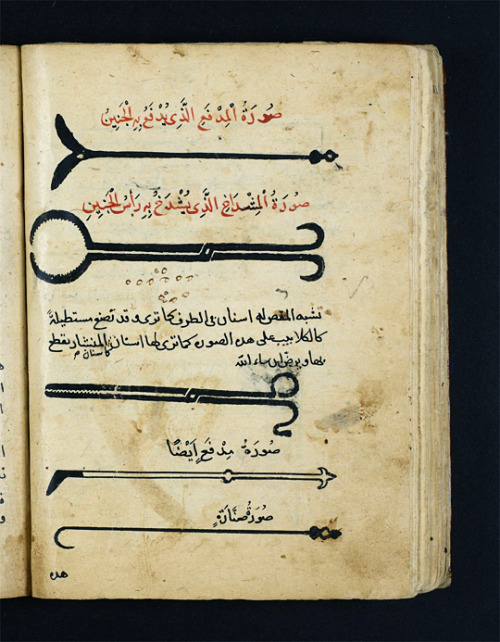 صُورَةُ الْمِدْفَعِ الَّذِي يُدْفَعُ بِهِ الْجَنِينُ
صُورَةُ الْمِشْدَاخِ الَّذِي يُشْدَخُ بِهِ رَأْسُ الْجَنِينِ
تشبه المقص له اسنان فى الطرف كما ترى و قد تصنع مستطيلة
كالكلاليب على هذه الصوره كما ترى لها اسنان كاسنان المنشار يقطع
بها و يرض ان شاء الله
صُورَةُ مِدْفَعٍ اَيْضًا
صُورَةُ صِنَّارَةٍ
هذه